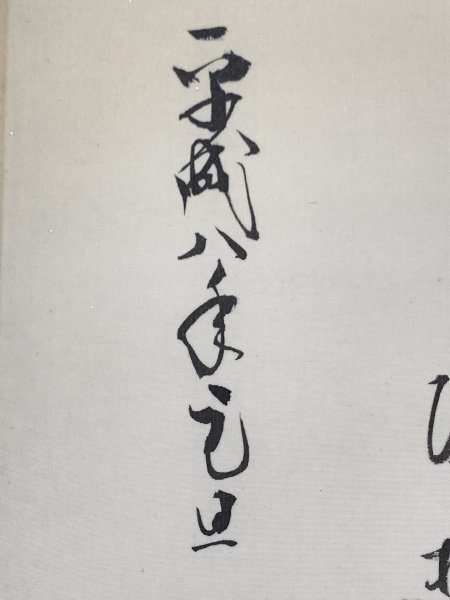 平成八年元旦